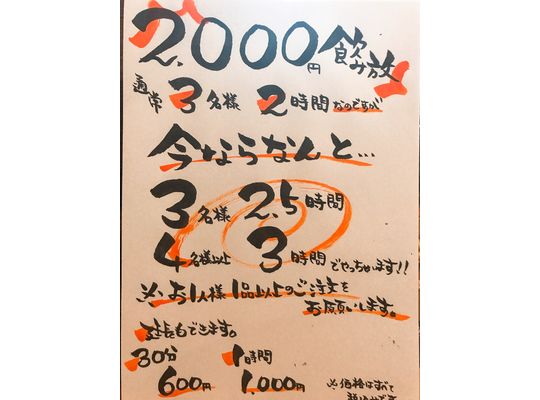 2,000円飲み放
通常 3名様 2時間なのですが
今ならなんと…
3名様 2.5時間
4名様以上 3時間でやっちゃいます!!
※お1人様1品以上のご注文を
お願いします。
延長もできます。
30分 1時間
600円 1,000円
※価格はすべて
税込みです